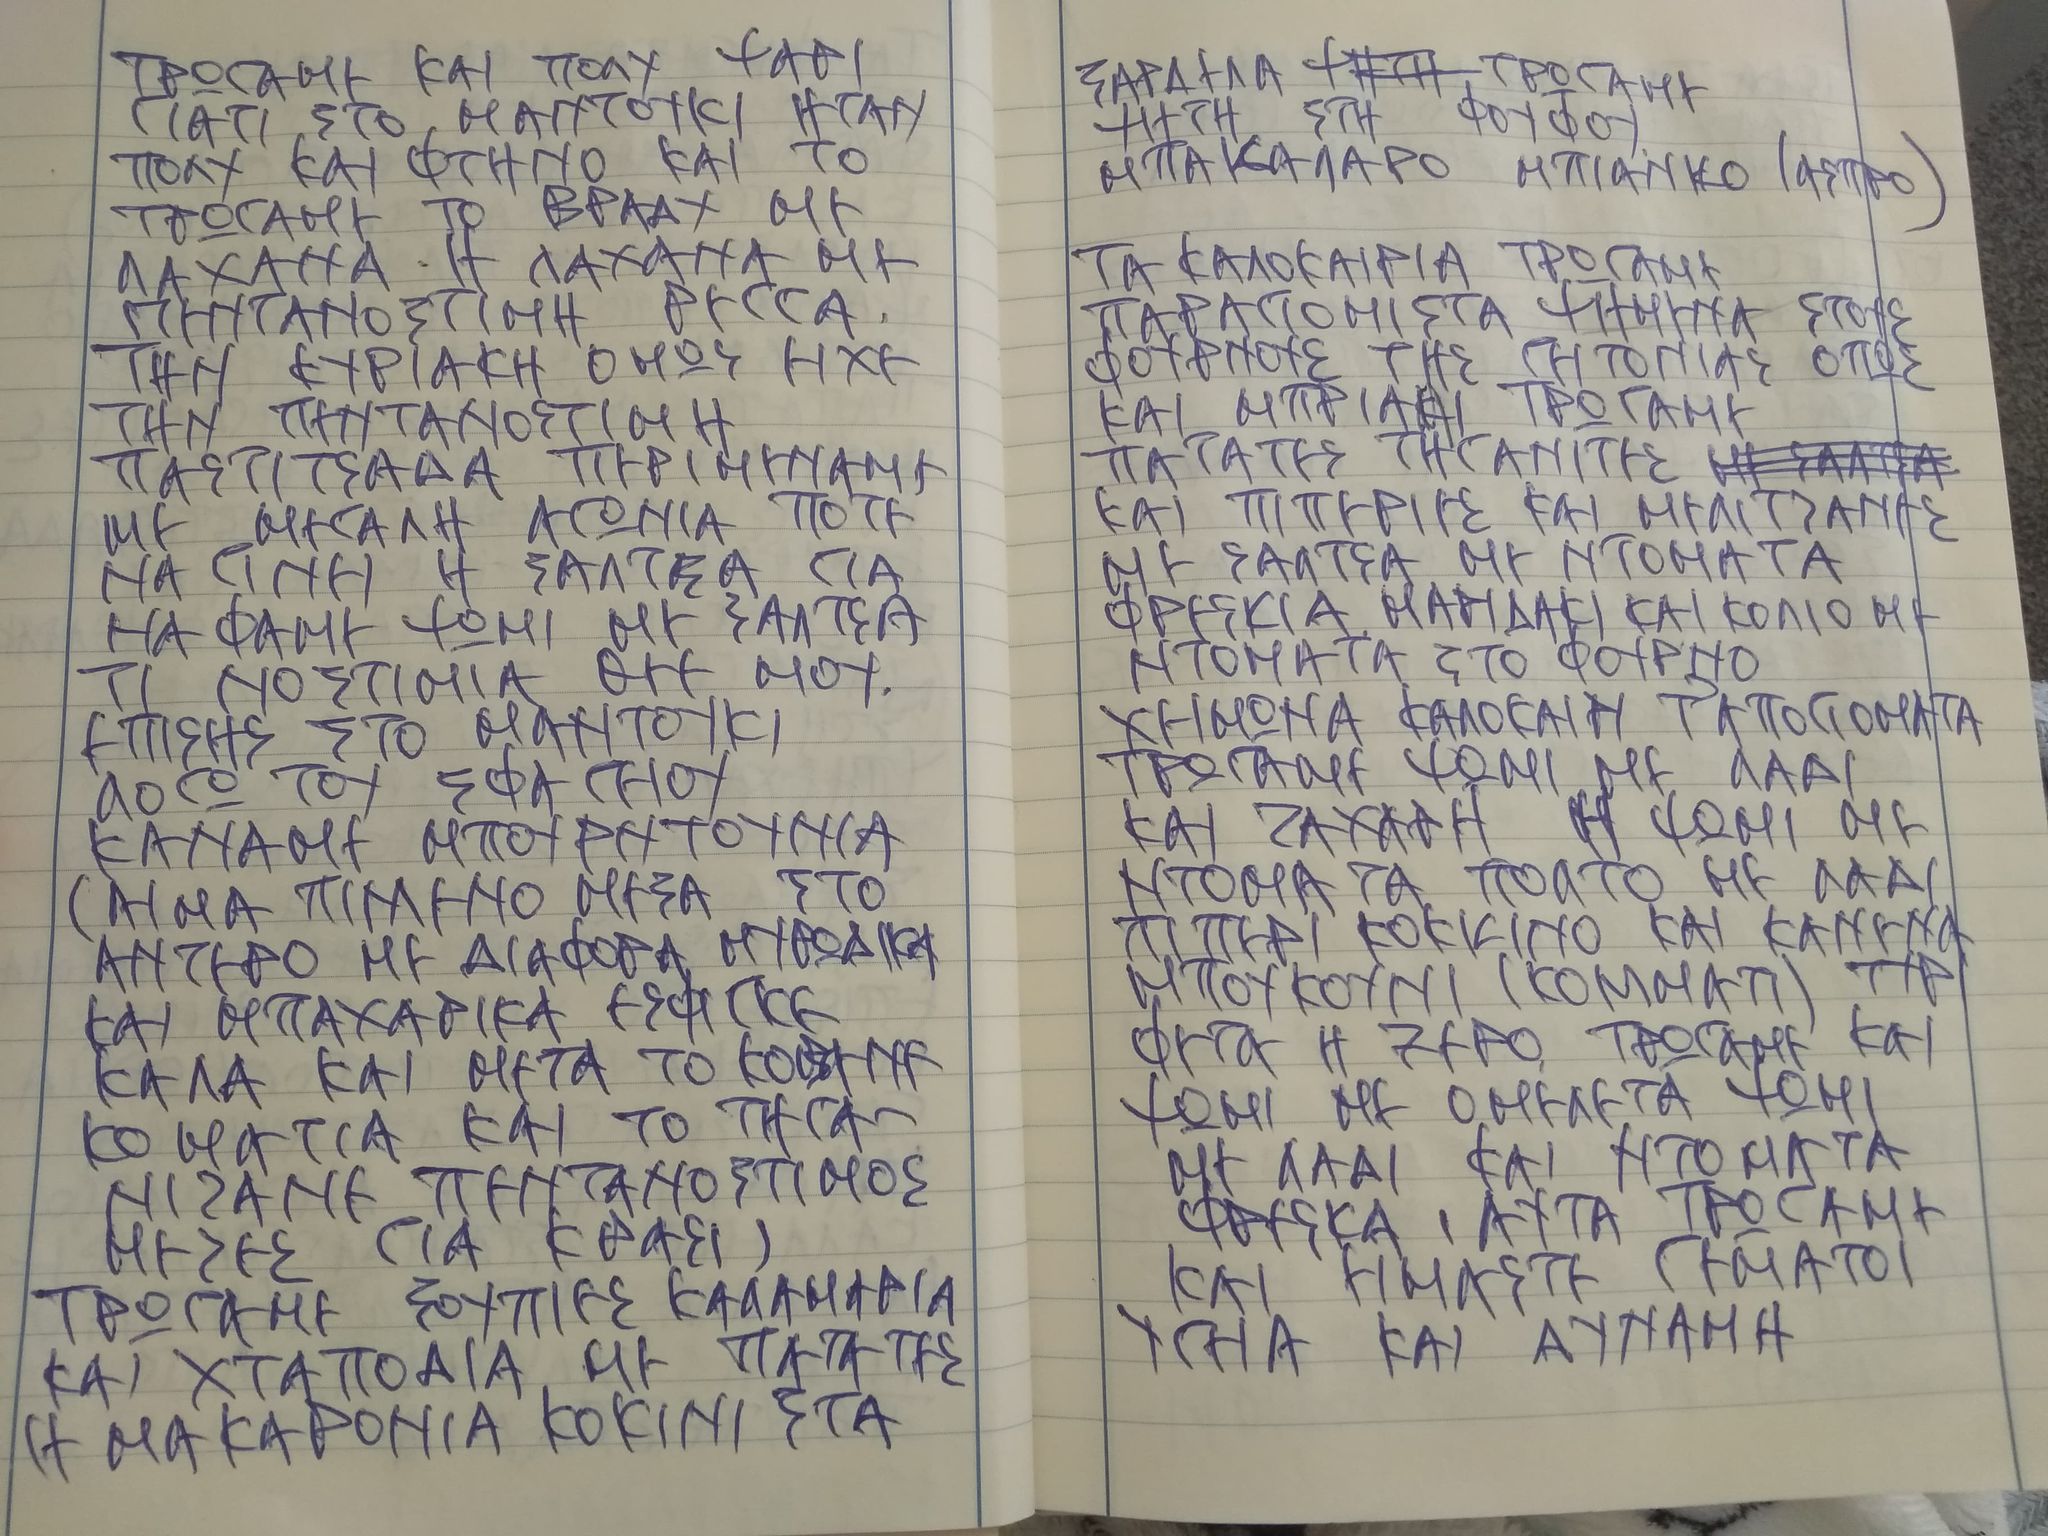 ΤΡΩΓΑΜΕ ΚΑΙ ΠΟΛΥ ΨΑΡΙ
ΓΙΑΤΙ ΣΤΟ ΜΑΝΤΟΥΚΙ ΗΤΑΝ
ΠΟΛΥ ΚΑΙ ΦΤΗΝΟ ΚΑΙ ΤΟ
ΤΡΩΓΑΜΕ ΤΟ ΒΡΑΔΥ ΜΕ
ΛΑΧΑΝΑ. Η ΛΑΧΑΝΑ ΜΕ
ΠΕΝΤΑΝΟΣΤΙΜΗ ΡΕΓΓΑ.
ΤΗΝ ΚΥΡΙΑΚΗ ΟΜΩΣ ΕΙΧΕ
ΤΗΝ ΠΕΝΤΑΝΟΣΤΙΜΗ
ΠΑΣΤΙΤΣΑΔΑ ΠΕΡΙΜΕΝΑΜΕ
ΜΕ ΜΕΓΑΛΗ ΑΓΩΝΙΑ ΠΟΤΕ
ΝΑ ΓΙΝΕΙ Η ΣΑΛΤΣΑ ΓΙΑ
ΝΑ ΦΑΜΕ ΨΩΜΙ ΜΕ ΣΑΛΤΣΑ
ΤΙ ΝΟΣΤΙΜΙΑ ΘΕΕ ΜΟΥ.
ΕΠΙΣΗΣ ΣΤΟ ΜΑΝΤΟΥΚΙ
ΛΟΓΩ ΤΟΥ ΣΦΑΓΕΙΟΥ
ΚΑΝΑΜΕ ΜΠΟΥΡΝΤΟΥΝΙΑ
(ΑΙΜΑ ΠΙΜΕΝΟ ΜΕΣΑ ΣΤΟ
ΑΝΤΕΡΟ ΜΕ ΔΙΑΦΟΡΑ ΜΥΡΩΔΙΚΑ
ΚΑΙ ΜΠΑΧΑΡΙΚΑ ΕΣΦΙΓΚΕ
ΚΑΛΑ ΚΑΙ ΜΕΤΑ ΤΟ ΚΟΒΑΝΕ
ΚΟΜΑΤΙΑ ΚΑΙ ΤΟ ΤΗΓΑ-
ΝΙΖΑΝΕ ΠΕΝΤΑΝΟΣΤΙΜΟΣ
ΜΕΖΕΣ ΓΙΑ ΚΡΑΣΙ)
ΤΡΩΓΑΜΕ ΣΟΥΠΙΕΣ ΚΑΛΑΜΑΡΙΑ
ΚΑΙ ΧΤΑΠΟΔΙΑ ΜΕ ΠΑΤΑΤΕΣ
Η ΜΑΚΑΡΟΝΙΑ ΚΟΚΙΝΙΣΤΑ
ΣΑΡΔΕΛΑ ΨΗΤΗ ΤΡΩΓΑΜΕ
ΨΗΤΗ ΣΤΗ ΦΟΥΦΟΥ.
ΜΠΑΚΑΛΑΡΟ ΜΠΙΑΝΚΟ (ΑΣΠΡΟ)
ΤΑ ΚΑΛΟΚΑΙΡΙΑ ΤΡΩΓΑΜΕ
ΠΑΡΑΓΙΟΜΙΣΤΑ ΨΗΜΕΝΑ ΣΤΟΥΣ
ΦΟΥΡΝΟΥΣ ΤΗΣ ΓΗΤΟΝΙΑΣ ΟΠΩΣ
ΚΑΙ ΜΠΡΙΑΜΙ ΤΡΩΓΑΜΕ
ΠΑΤΑΤΕΣ ΤΗΓΑΝΙΤΕΣ ΜΕ ΣΑΛΤΣΑ
ΚΑΙ ΠΙΠΕΡΙΕΣ ΚΑΙ ΜΕΛΙΤΖΑΝΕΣ
ΜΕ ΣΑΛΤΣΑ ΜΕ ΝΤΟΜΑΤΑ
ΦΡΕΣΚΙΑ ΜΑΝΔΑΚΙ ΚΑΙ ΚΟΛΙΟ ΜΕ
ΝΤΟΜΑΤΑ ΣΤΟ ΦΟΥΡΝΟ
ΧΕΙΜΩΝΑ ΚΑΛΟΚΑΙΡΙ ΤΑΠΟΓΙΟΜΑΤΑ
ΤΡΩΓΑΜΕ ΨΩΜΙ ΜΕ ΛΑΔΙ
ΚΑΙ ΖΑΧΑΡΗ Η ΨΩΜΙ ΜΕ
ΝΤΟΜΑΤΑ ΠΟΛΤΟ ΜΕ ΛΑΔΙ
ΠΙΠΕΡΙ ΚΟΚΚΙΝΟ ΚΑΙ ΚΑΝΕΝΑ
ΜΠΟΥΚΟΥΝΙ (ΚΟΜΜΑΤΙ) ΤΥΡΙ
ΦΕΤΑ Η ΖΕΡΟ. ΤΡΩΓΑΜΕ ΚΑΙ
ΨΩΜΙ ΜΕ ΟΜΕΛΕΤΑ ΨΩΜΙ
ΜΕ ΛΑΔΙ ΚΑΙ ΝΤΟΜΑΤΑ
ΦΡΕΣΚΑ, ΑΥΤΑ ΤΡΩΓΑΜΕ
ΚΑΙ ΕΙΜΑΣΤΕ ΓΕΜΑΤΟΙ
ΥΓΕΙΑ ΚΑΙ ΔΥΝΑΜΗ